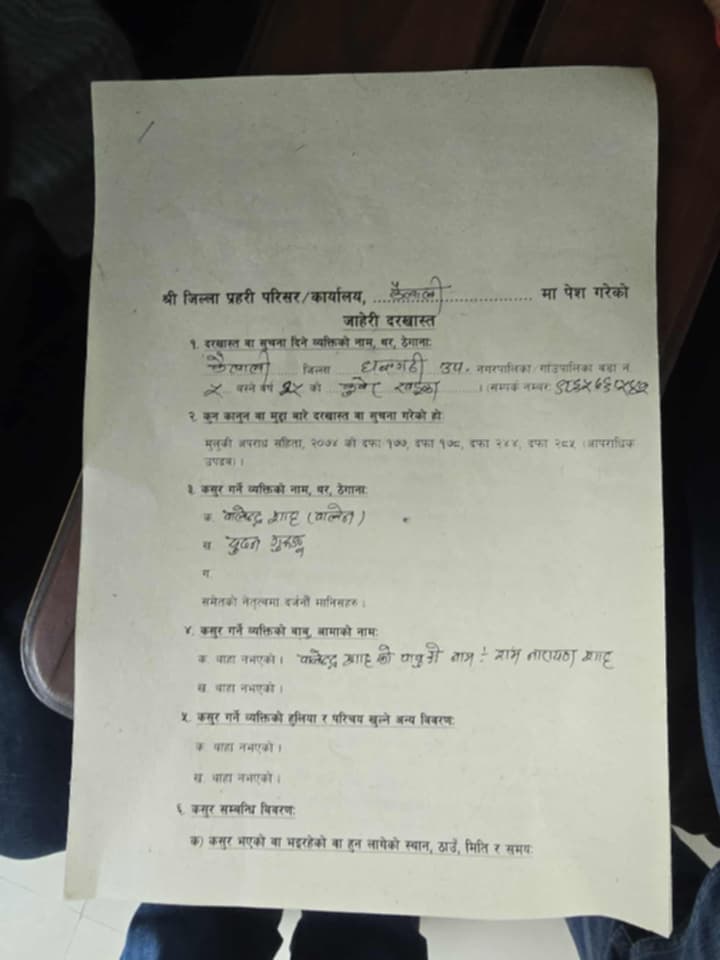 श्री जिल्ला प्रहरी परिसर/कार्यालय, कैलाली मा पेश गरेको
जाहेरी दरखास्त
१. दरखास्त वा सुचना दिने व्यक्तिको नाम, थर, ठेगानाः
कैलाली जिल्ला धनगढी उप. नगरपालिका/गाउँपालिका वडा नं.
५ बस्ने वर्ष २५ को कुवेर । (सम्पर्क नम्बरः
२. कुन कानुन वा मुद्दा बारे दरखास्त वा सुचना गरेको होः
मुलुकी अपराध संहिता, २०७४ को दफा १७७, दफा १७८, दफा २४४, दफा २८५ (आपराधिक
उपद्रव) ।
३. कसुर गर्ने व्यक्तिको नाम, थर, ठेगानाः
क. वालेन्द्र शाह (वालेन)
ख. सुदन गुरुङ्ग
ग.
समेतको नेतृत्वमा दर्जनौं मानिसहरु ।
४. कसुर गर्ने व्यक्तिको बाबु, आमाको नामः
क. थाहा नभएको । वालेन्द्र शाह को वावुको नाम : राम नारायण शाह
ख. थाहा नभएको ।
५. कसुर गर्ने व्यक्तिको हुलिया र परिचय खुल्ने अन्य विवरणः
क. थाहा नभएको ।
ख. थाहा नभएको ।
६. कसुर सम्बन्धि विवरणः
क) कसुर भएको वा भइरहेको वा हुन लागेको स्थान, ठाउँ, मिति र समयः